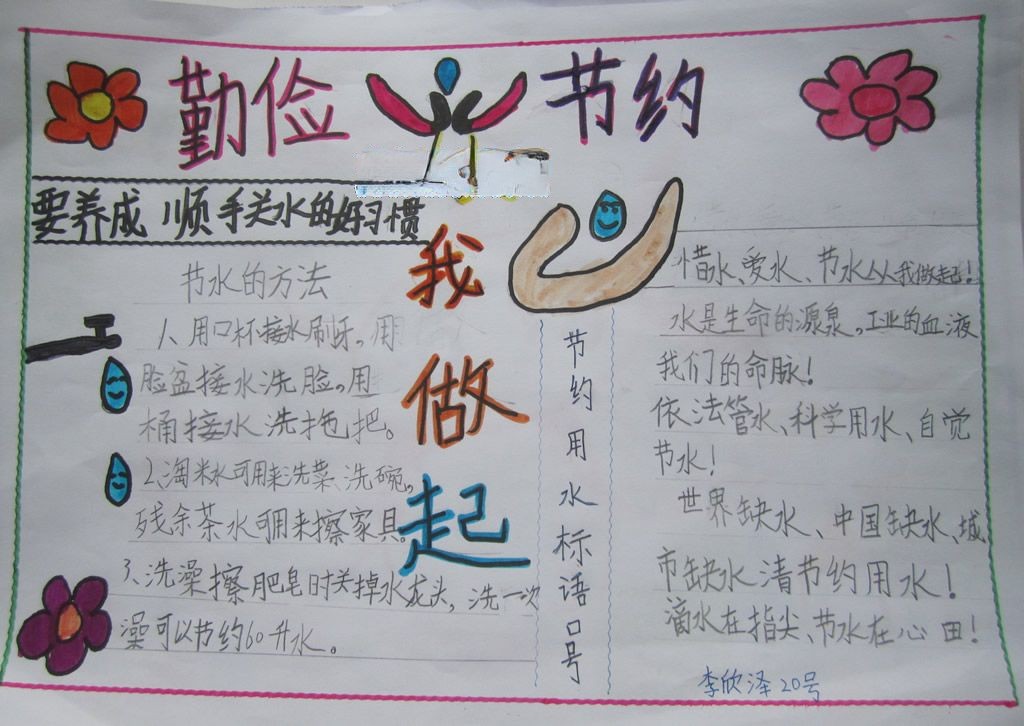 勤俭 节约
要养成 顺手关水的好习惯
我
做
起
节水的方法
1、用口杯接水刷牙,用
脸盆接水洗脸,用
桶接水洗拖把。
2、淘米水可用来洗菜、洗碗,
残余茶水可用来擦家具。
3、洗澡擦肥皂时关掉水龙头,洗一次
澡可以节约60升水。
节约用水标语口号
惜水、爱水、节水从我做起!
水是生命的源泉,工业的血液
我们的命脉!
依法管水、科学用水、自觉
节水!
世界缺水、中国缺水、城
市缺水 清节约用水!
滴水在指尖、节水在心田!
李欣泽 20号